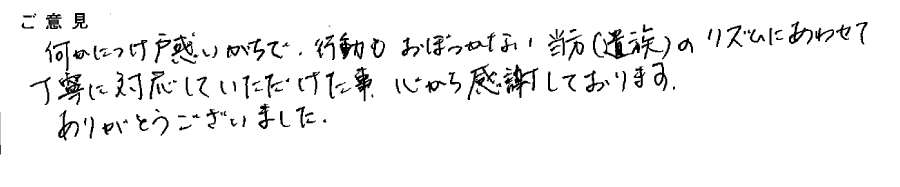 ご意見
何かにつけ戸惑いがちで、行動もおぼつかない当方(遺族)のリズムにあわせて
丁寧に対応していただけた事、心から感謝しております。
ありがとうございました。